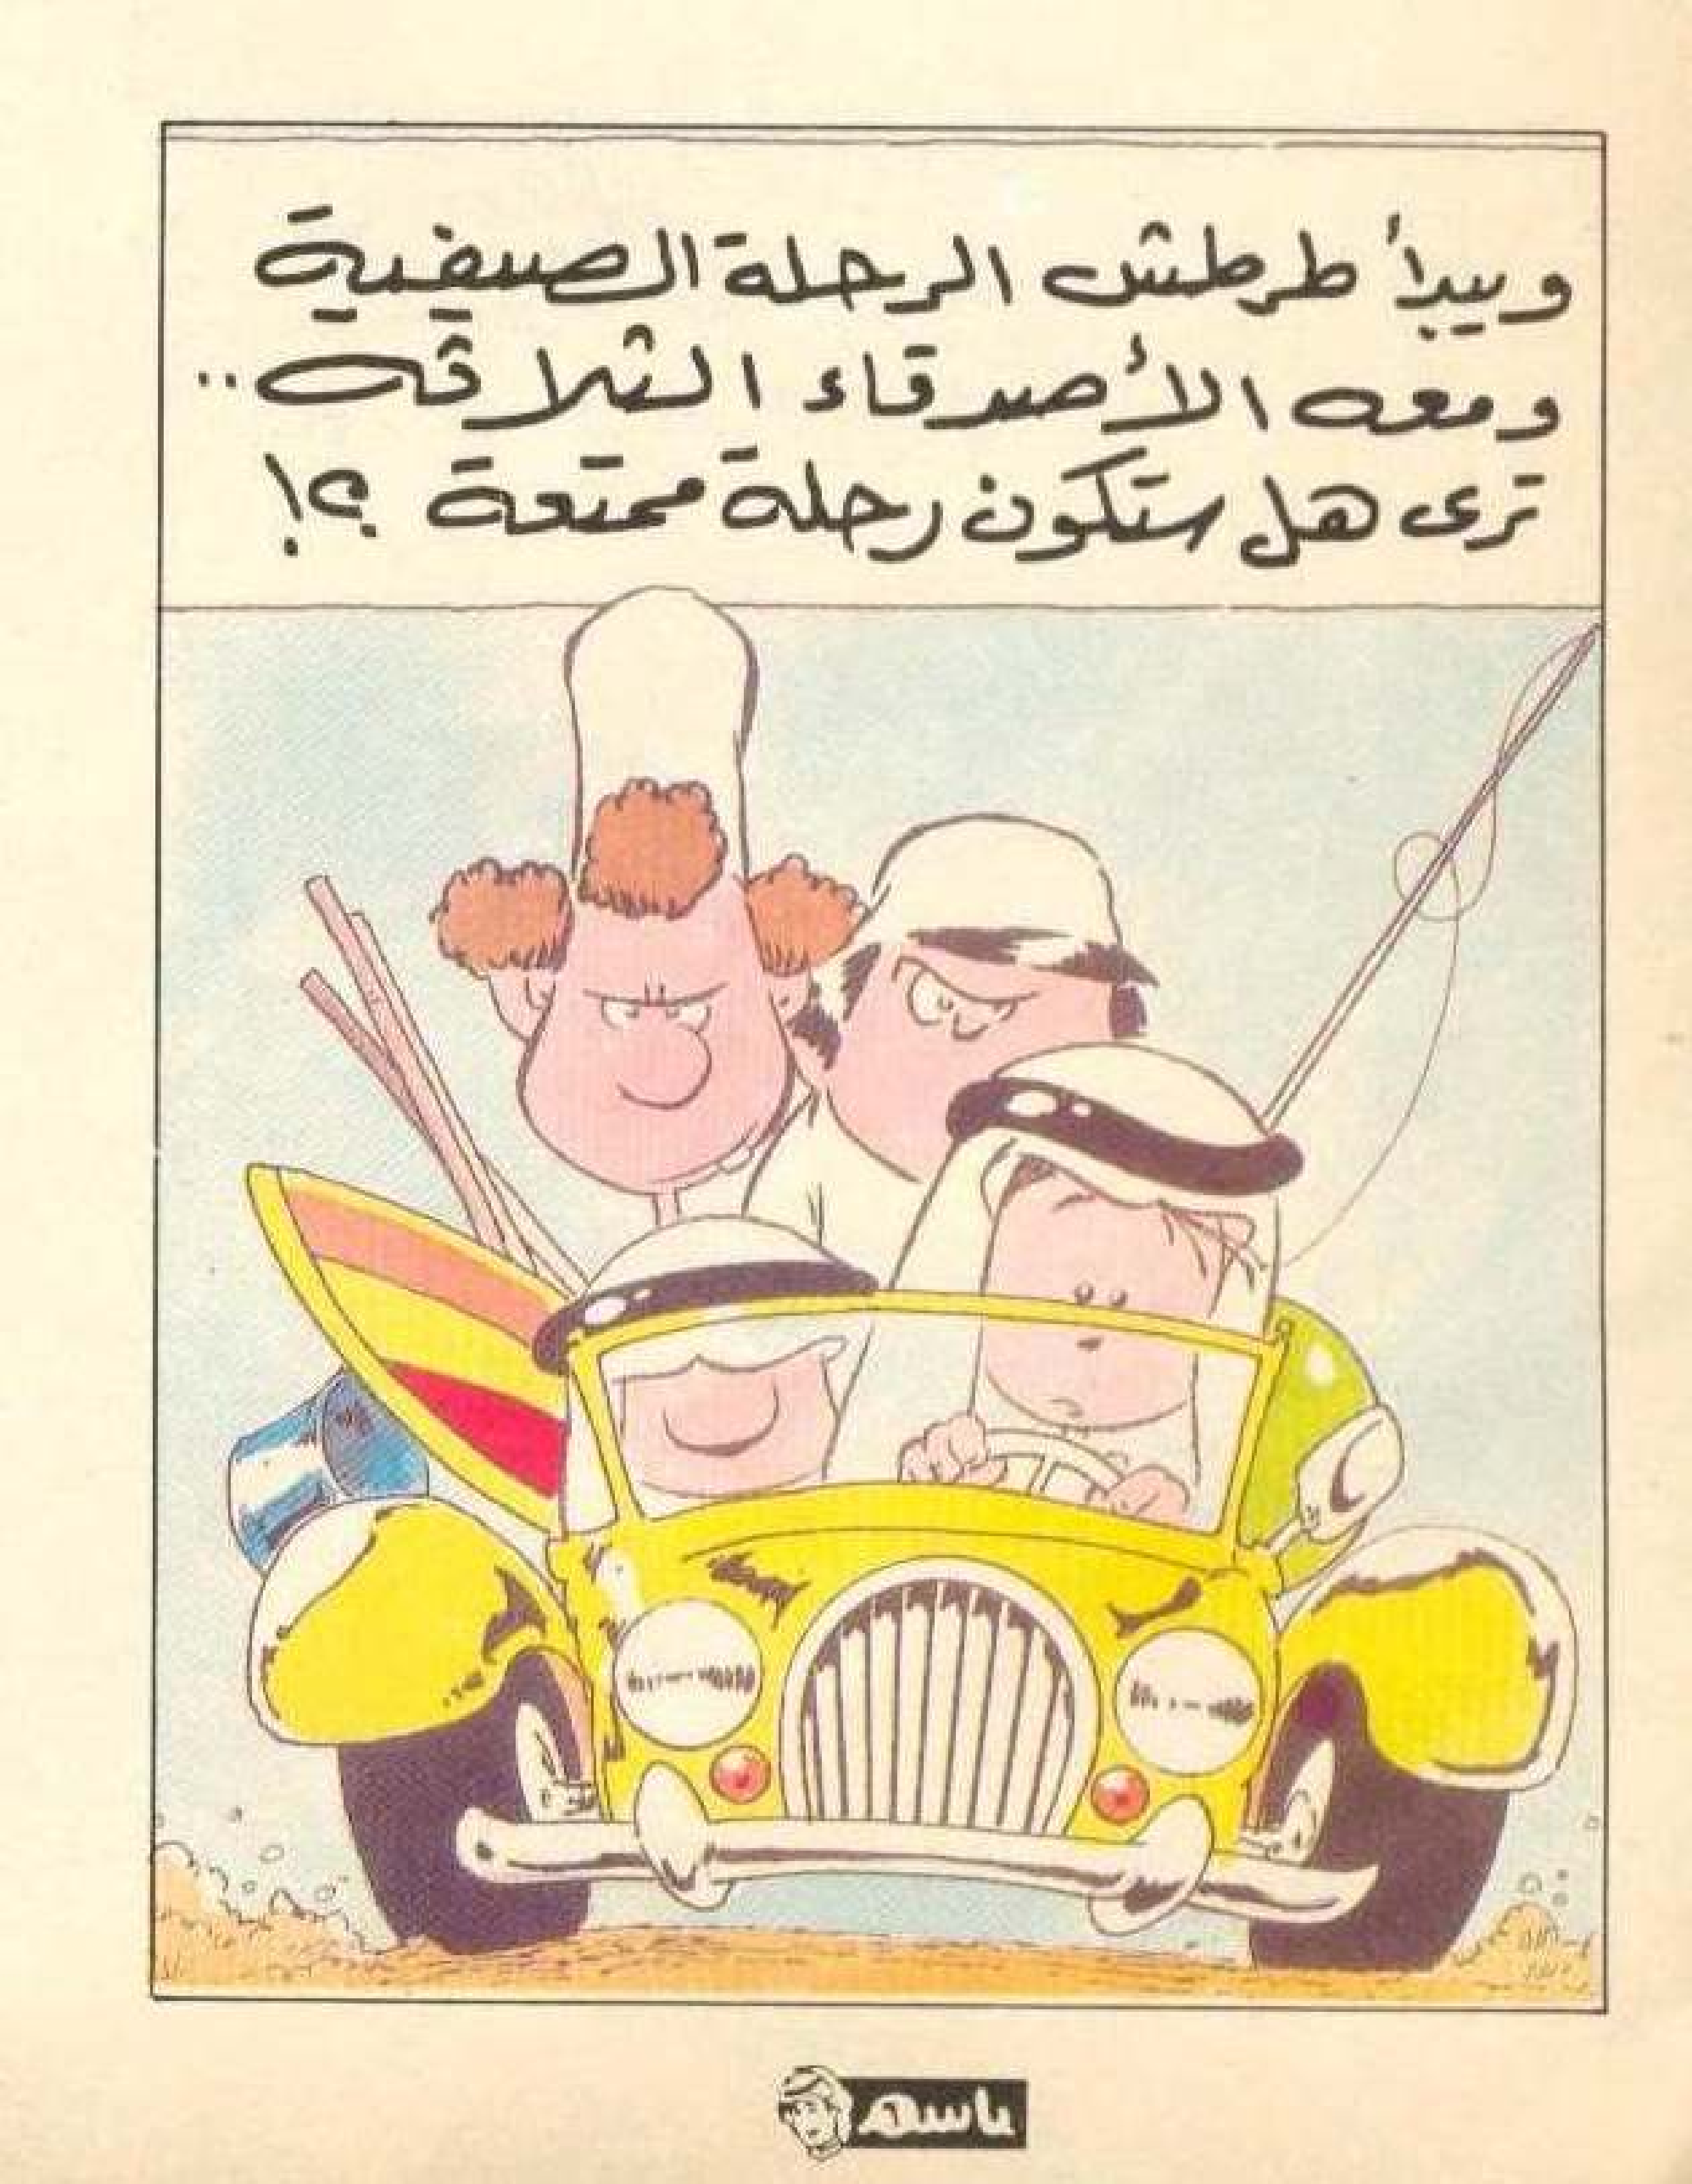 ويبدأ طرطش الرحلة الصيفية
ومعه الأصدقاء الثلاثة..
ترى هل ستكون رحلة ممتعة ؟!
باسم